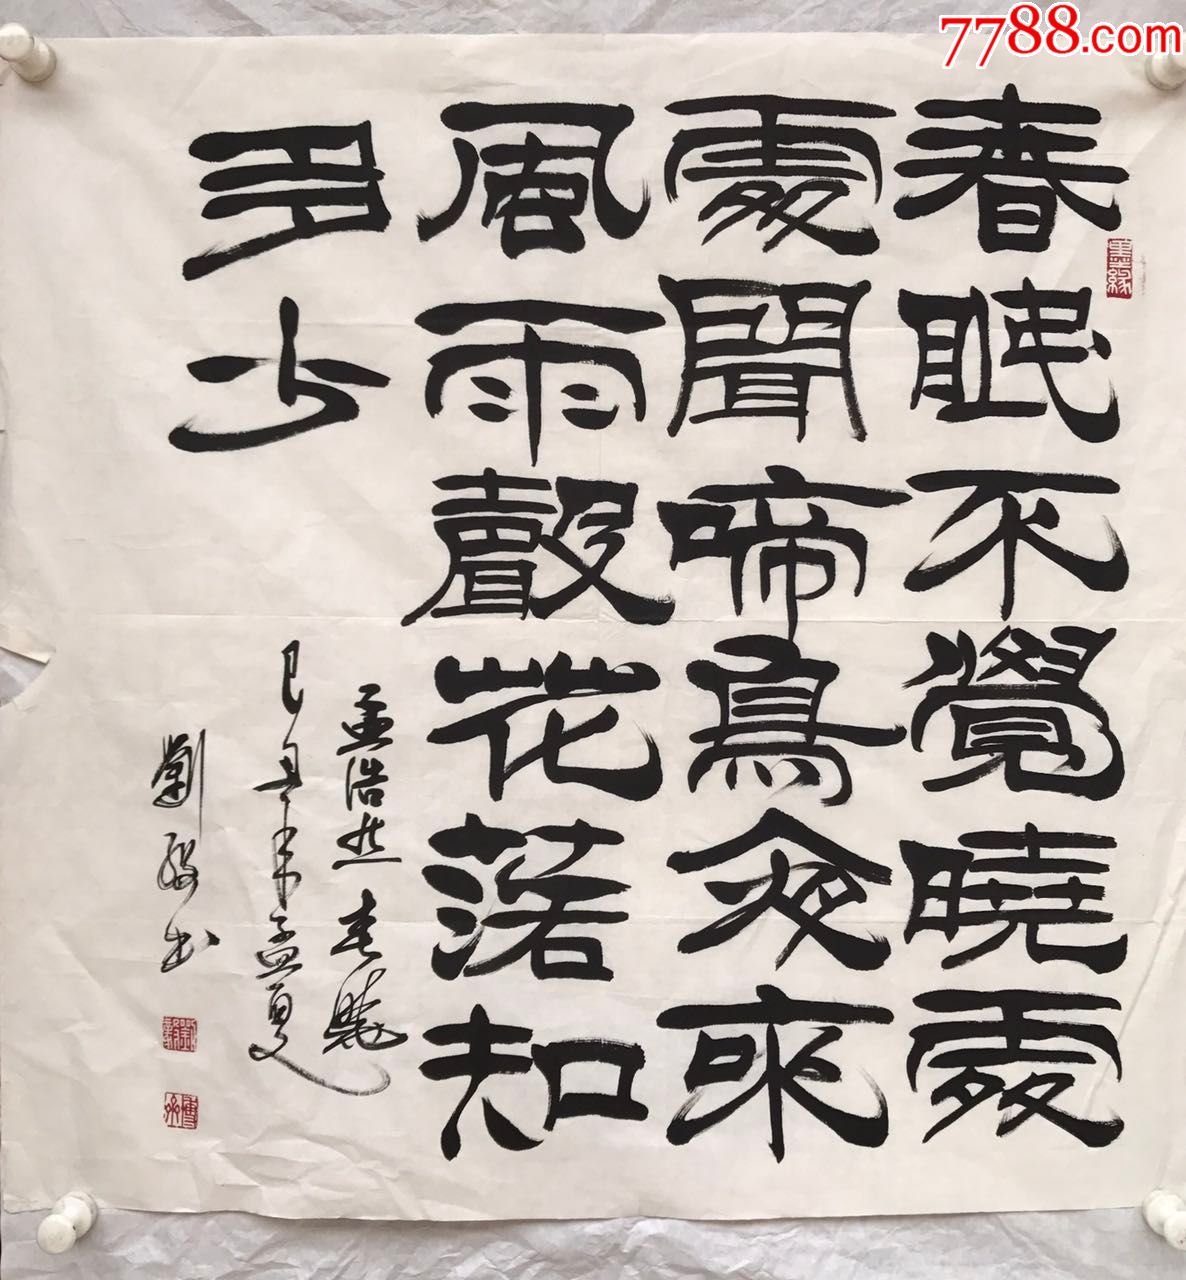 7788.com
春眠不覺曉處
處聞啼鳥夜來
風雨聲花落知
多少
孟浩然春曉
己丑年孟夏
劉
書
墨緣